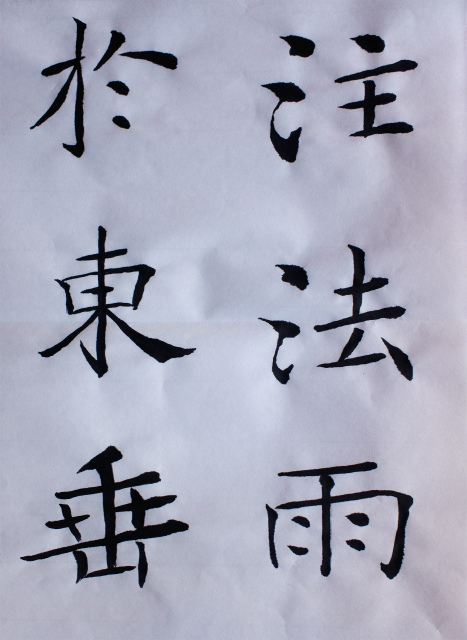 注法雨
於東垂